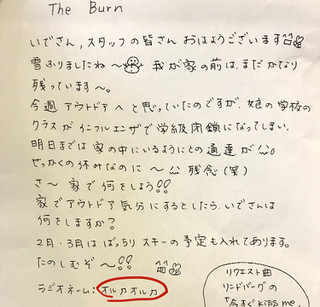 The Burn
いでさん,スタッフの皆さん おはようございます
雪ふりましたね〜 我が家の前は、まだかなり
残っています〜。
今週 アウトドアへ と思っていたのですが、娘の学校の
クラスが インフルエンザで学級閉鎖になってしまい、
明日までは 家の中にいるようにとの通達が
せっかくの休みなのに〜 残念(笑)
さ〜 家で何をしよう!!
家でアウトドア気分にするとしたら、いでさんは
何をしますか?
2月・3月は ばっちり スキーの予定も入れてあります。
たのしむぞ〜!!
ラジオネーム:オルカオルカ
リクエスト曲
リンドバーグの
「今すぐKiss me